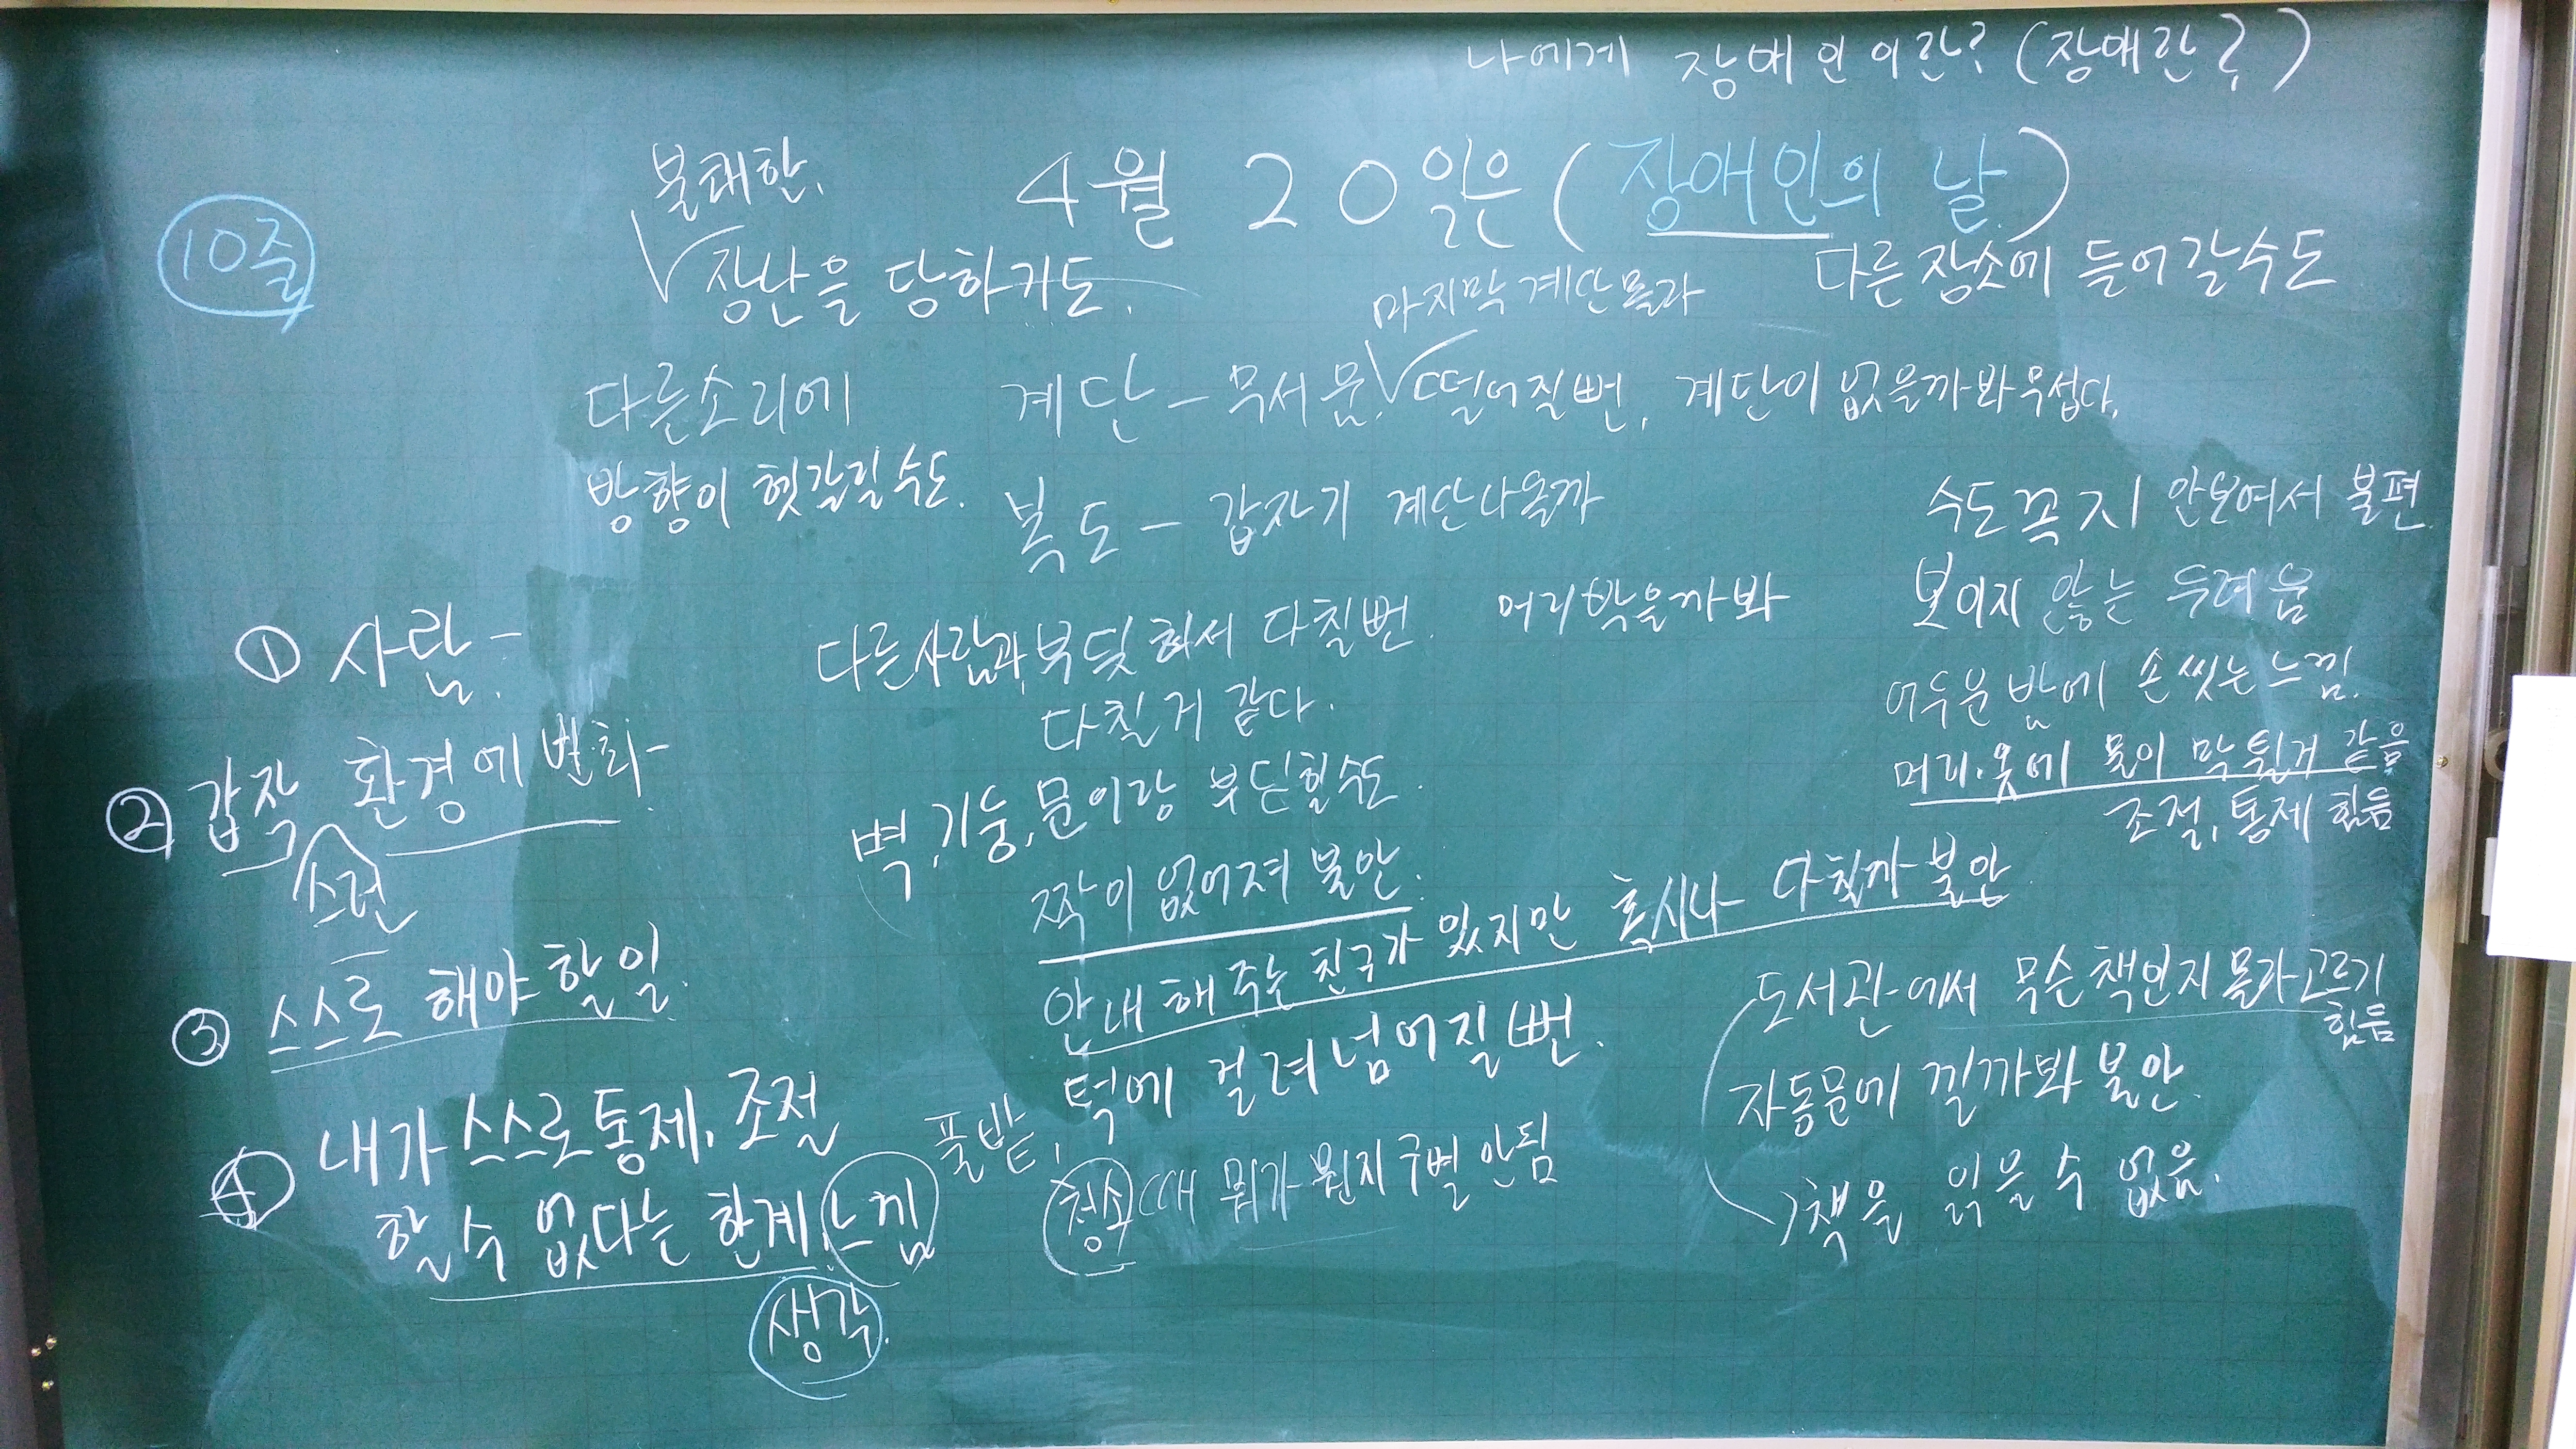 나에게 장애인이란? (장애란?)
4월 20일은 (장애인의 날)
10줄
불쾌한
장난을 당하기도.
다른 장소에 들어갈수도
마지막 계단 몰라
계단 - 무서움, 떨어질뻔, 계단이 없을까봐 무섭다.
다른소리에
방향이 헷갈릴 수도.
복도 - 갑자기 계단나올까
다른사람과 부딪혀서 다칠뻔. 머리 박을까봐
다칠거 같다.
벽, 기둥, 문이랑 부딛힐수도.
짝이 없어져 불안.
안내해 주는 친구가 있지만 혹시나 다칠까 불안
턱에 걸려 넘어질뻔.
풀밭,
청소 때 뭐가 뭔지 구별 안됨
수도꼭지 안보여서 불편
보이지 않는 두려움
어두운 밤에 손 씻는 느낌.
머리·옷에 물이 막 튈거 같음
조절, 통제 힘듬
도서관에서 무슨 책인지 몰라 고르기
힘듬
자동문에 낄까봐 불안.
책을 읽을 수 없음.
① 사람 -
② 갑작 환경에 변화 -
스런
③ 스스로 해야 할 일.
④ 내가 스스로 통제, 조절
할 수 없다는 한계 느낌
생각.